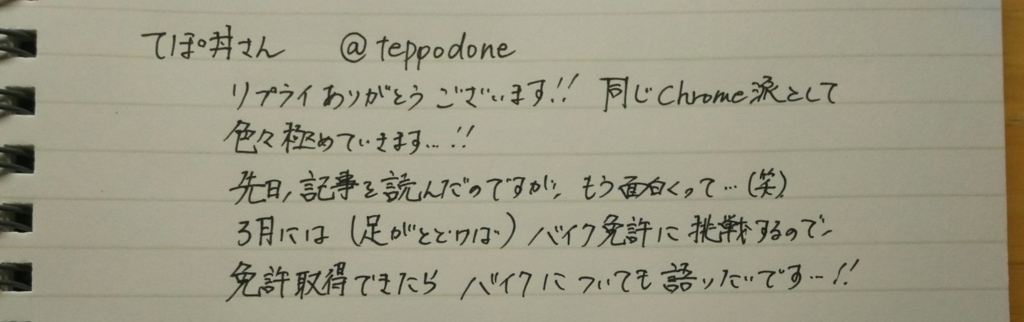 てぽ丼さん @teppodone
リプライありがとうございます!! 同じchrome派として
色々極めていきます…!!
先日、記事を読んだのですが、もう面白くって…(笑)
3月には(足がとどけば)バイク免許に挑戦するので、
免許取得できたら バイクについても語りたいです…!!